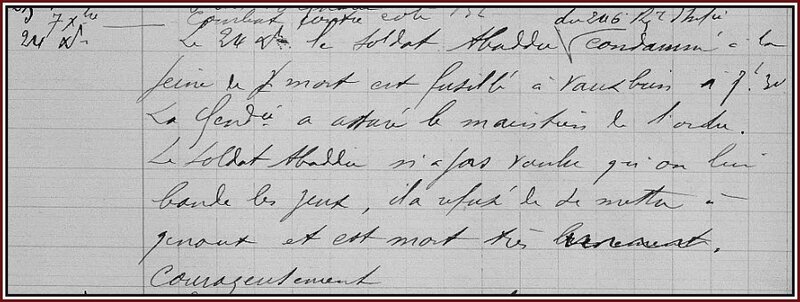 7 Xbre Combat contre cote 132
24 Xbre Le 24 Xbre le soldat Abaddie du 246 Rgt d'Infie condamné à la
peine de mort est fusillé à Vauxbuin à 7h30
La Gendie a assuré le maintien de l'ordre.
Le soldat Abaddie n'a pas voulu qu'on lui
bande les yeux, il a refusé de se mettre à
genoux et est mort très
courageusement